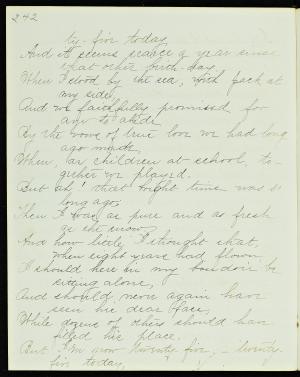 242
ty-five today.
And it seems scarce a year since
that other birth-day,
When I stood by the sea, with Jack at
my side,
And we faithfully promised for
aye to abide
By the vows of true love we had long
ago made,
When, as children at school, to-
gether we played.
But ah! that bright time was so
long ago,
Then I was as pure and as fresh
as the snow,
And how little I thought that,
when eight years had flown,
I should here in my boudoir be
sitting alone,
And should never again have
seen his dear face,
While dozens of others should have
filled his place.
But I'm now twenty-five, - twenty-
five today,